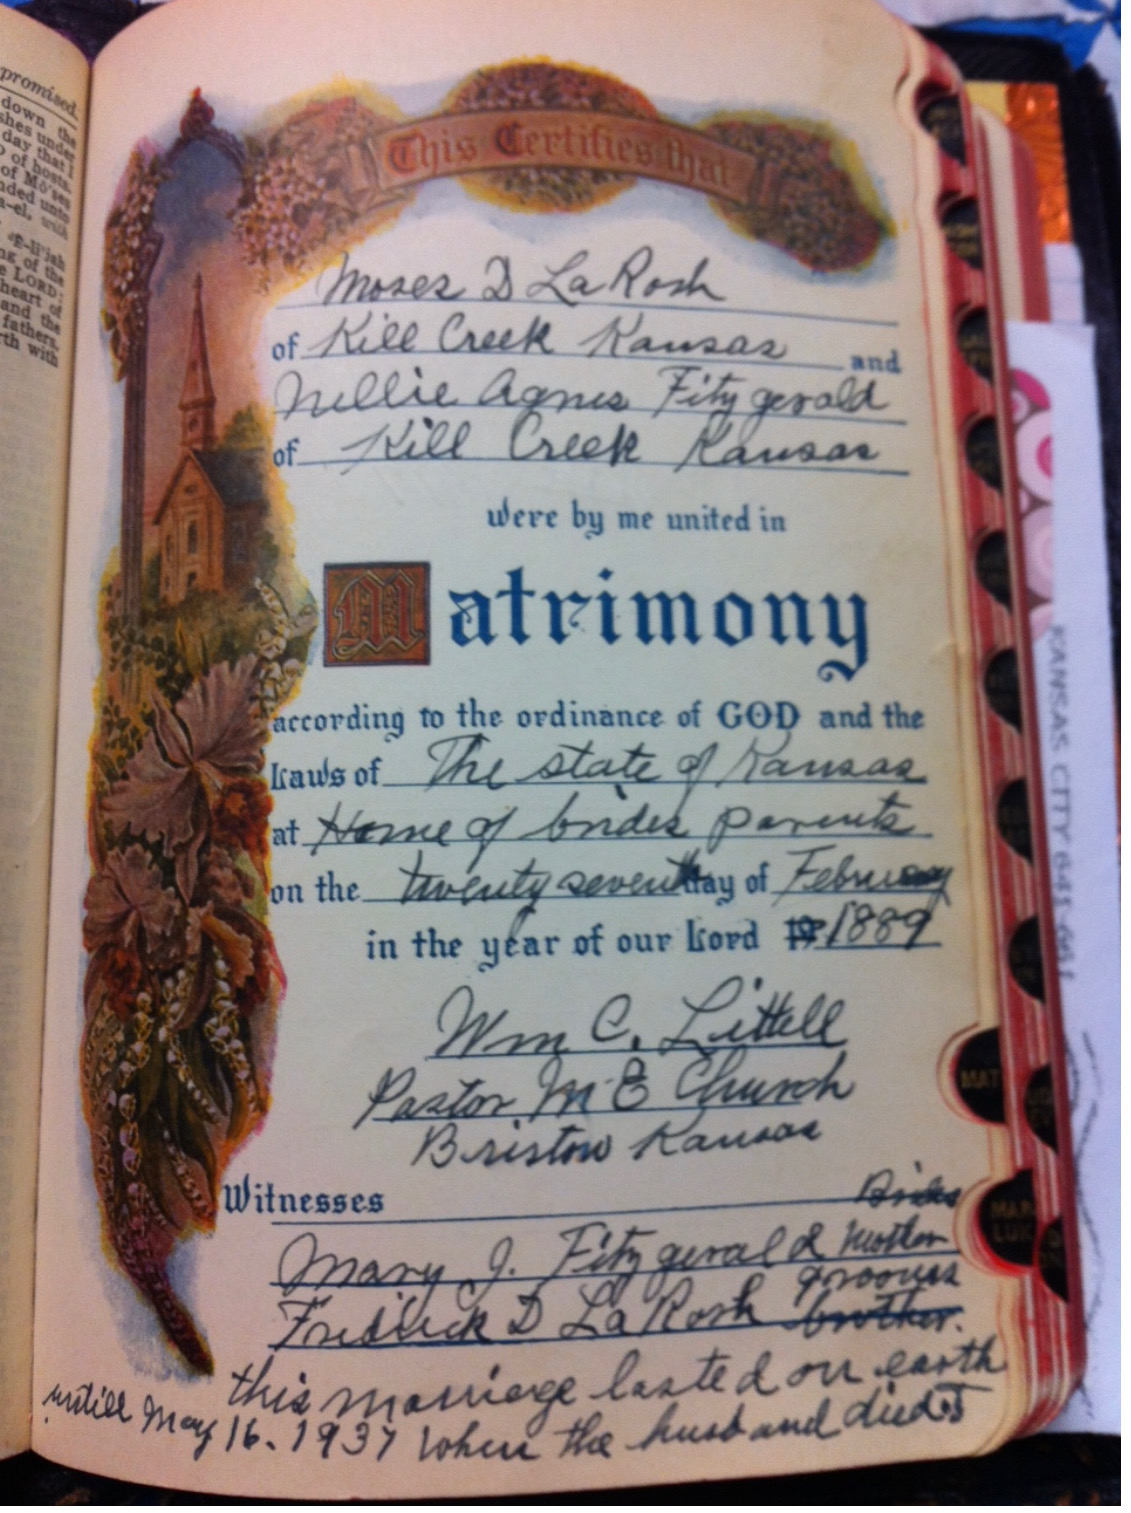 promised.
down the
shes under
day that I
of hosts.
of Mō'ses
nded unto
a-el, with
E-lī'jah
ng of the
e LORD:
heart of
and the
fathers,
rth with
This Certifies that
Moses D LaRosh
of Kill Creek Kansas and
Nellie Agnes Fitzgerald
of Kill Creek Kansas
were by me united in
Matrimony
according to the ordinance of GOD and the
Laws of The state of Kansas
at Home of brides parents
on the twenty seventh day of February
in the year of our Lord 19 1889
Wm C. Littell
Pastor M E Church
Bristow Kansas
Witnesses Brides
Mary J. Fitzgerald Mother
grooms
Fredrick D LaRosh brother.
this marriage lasted on earth
untill May 16. 1937 when the husband died
KANSAS CITY
MAT
MAR
LUK